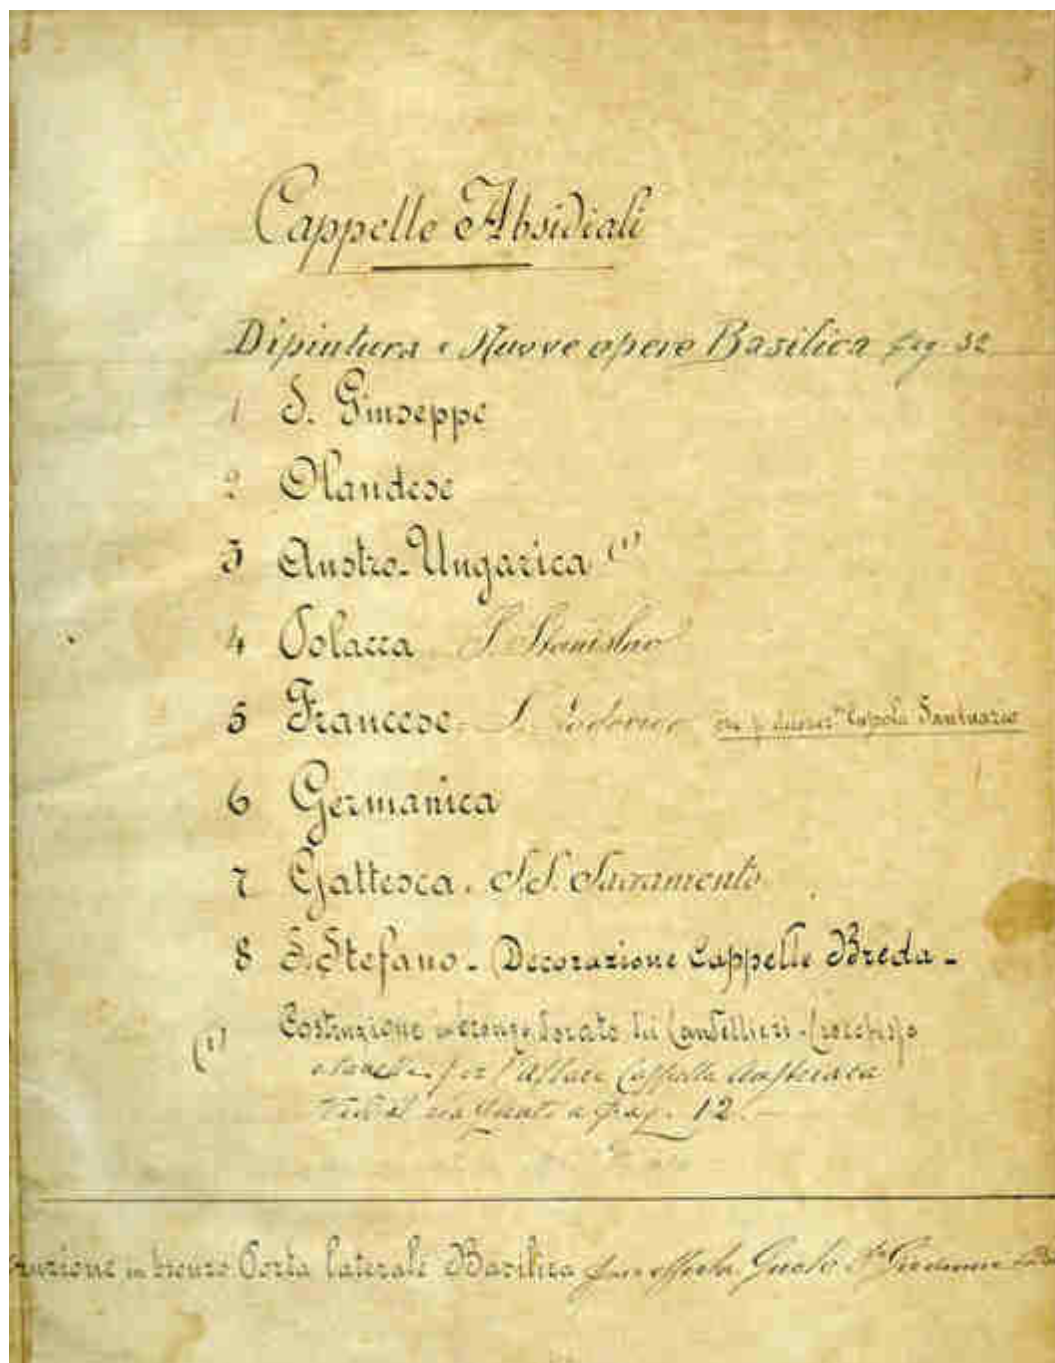 Cappelle Absidiali
Dipintura e Nuove opere Basilica pag. 32
1 S. Giuseppe
2 Olandese
3 Austro-Ungarica (1)
4 Polacca S. Stanislao
5 Francese - S. Lodovico Cupola Santuario
6 Germanica
7 Gattesca. S.S. Sacramento
8 S. Stefano - Decorazione Cappelle Breda -
(1) Costruzione in bronzo dorato dei Candellieri - Crocifisso
per l'Altare Cappella Austriaca
a pag. 12.
in bronzo Porta laterale Basilica offerta